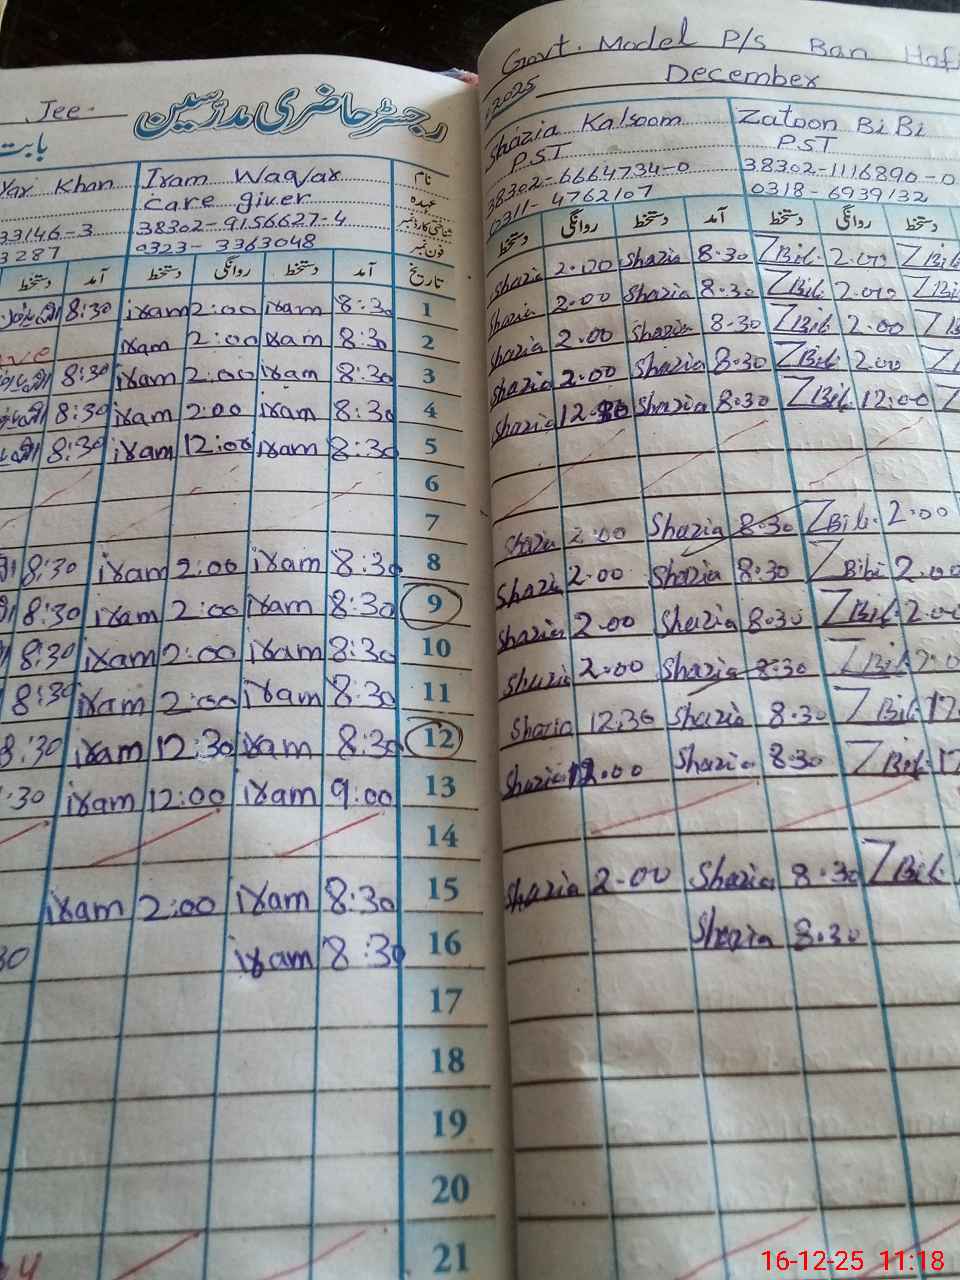 Jee.
رجسٹر حاضری مدرسین
بابت
Yar Khan
Iram Waqar
نام
care giver
عہدہ
33146-3
38302-9156627-4
شناختی کارڈ نمبر
3287
0323-3363048
فون نمبر
دستخط آمد دستخط روانگی دستخط آمد تاریخ
8:30 iram 2:00 iram 8:30 1
iram 2:00 iram 8:30 2
8:30 iram 2:00 iram 8:30 3
8:30 iram 2:00 iram 8:30 4
8:30 iram 12:00 iram 8:30 5
6
7
8:30 iram 2:00 iram 8:30 8
8:30 iram 2:00 iram 8:30 9
8:30 iram 2:00 iram 8:30 10
8:30 iram 2:00 iram 8:30 11
8:30 iram 12:30 iram 8:30 12
:30 iram 12:00 iram 9:00 13
14
iram 2:00 iram 8:30 15
30 iram 8:30 16
17
18
19
20
21
Govt. Model P/s Ban Haf
2025 December
Shazia Kalsoom
Zatoon BiBi
PST
PST
38302-6664734-0
38302-1116890-0
0311-4762107
0318-6939132
دستخط روانگی دستخط آمد دستخط روانگی دستخط
Shazia 2.00 Shazia 8.30 ZBibi 2.00 ZBib
Shazia 2.00 Shazia 8.30 ZBibi 2.00 ZBi
Shazia 2.00 Shazia 8.30 ZBibi 2.00 ZB
Shazia 2.00 Shazia 8.30 ZBibi 2.00 Z
Shazia Shazia 8.30 ZBibi 12.00 Z
Shazia 2.00 Shazia 8.30 ZBibi 2.00
Shazia 2.00 Shazia 8.30 ZBibi 2.00
Shazia 2.00 Shazia 8.30 ZBibi 2.00
Shazia 2.00 Shazia 8.30 ZBibi 2.0
Shazia 12.30 Shazia 8.30 ZBibi 12
Shazia 12.00 Shazia 8.30 ZBibi 12
Shazia 2.00 Shazia 8.30 ZBibi
Shazia 8.30
16-12-25 11:18